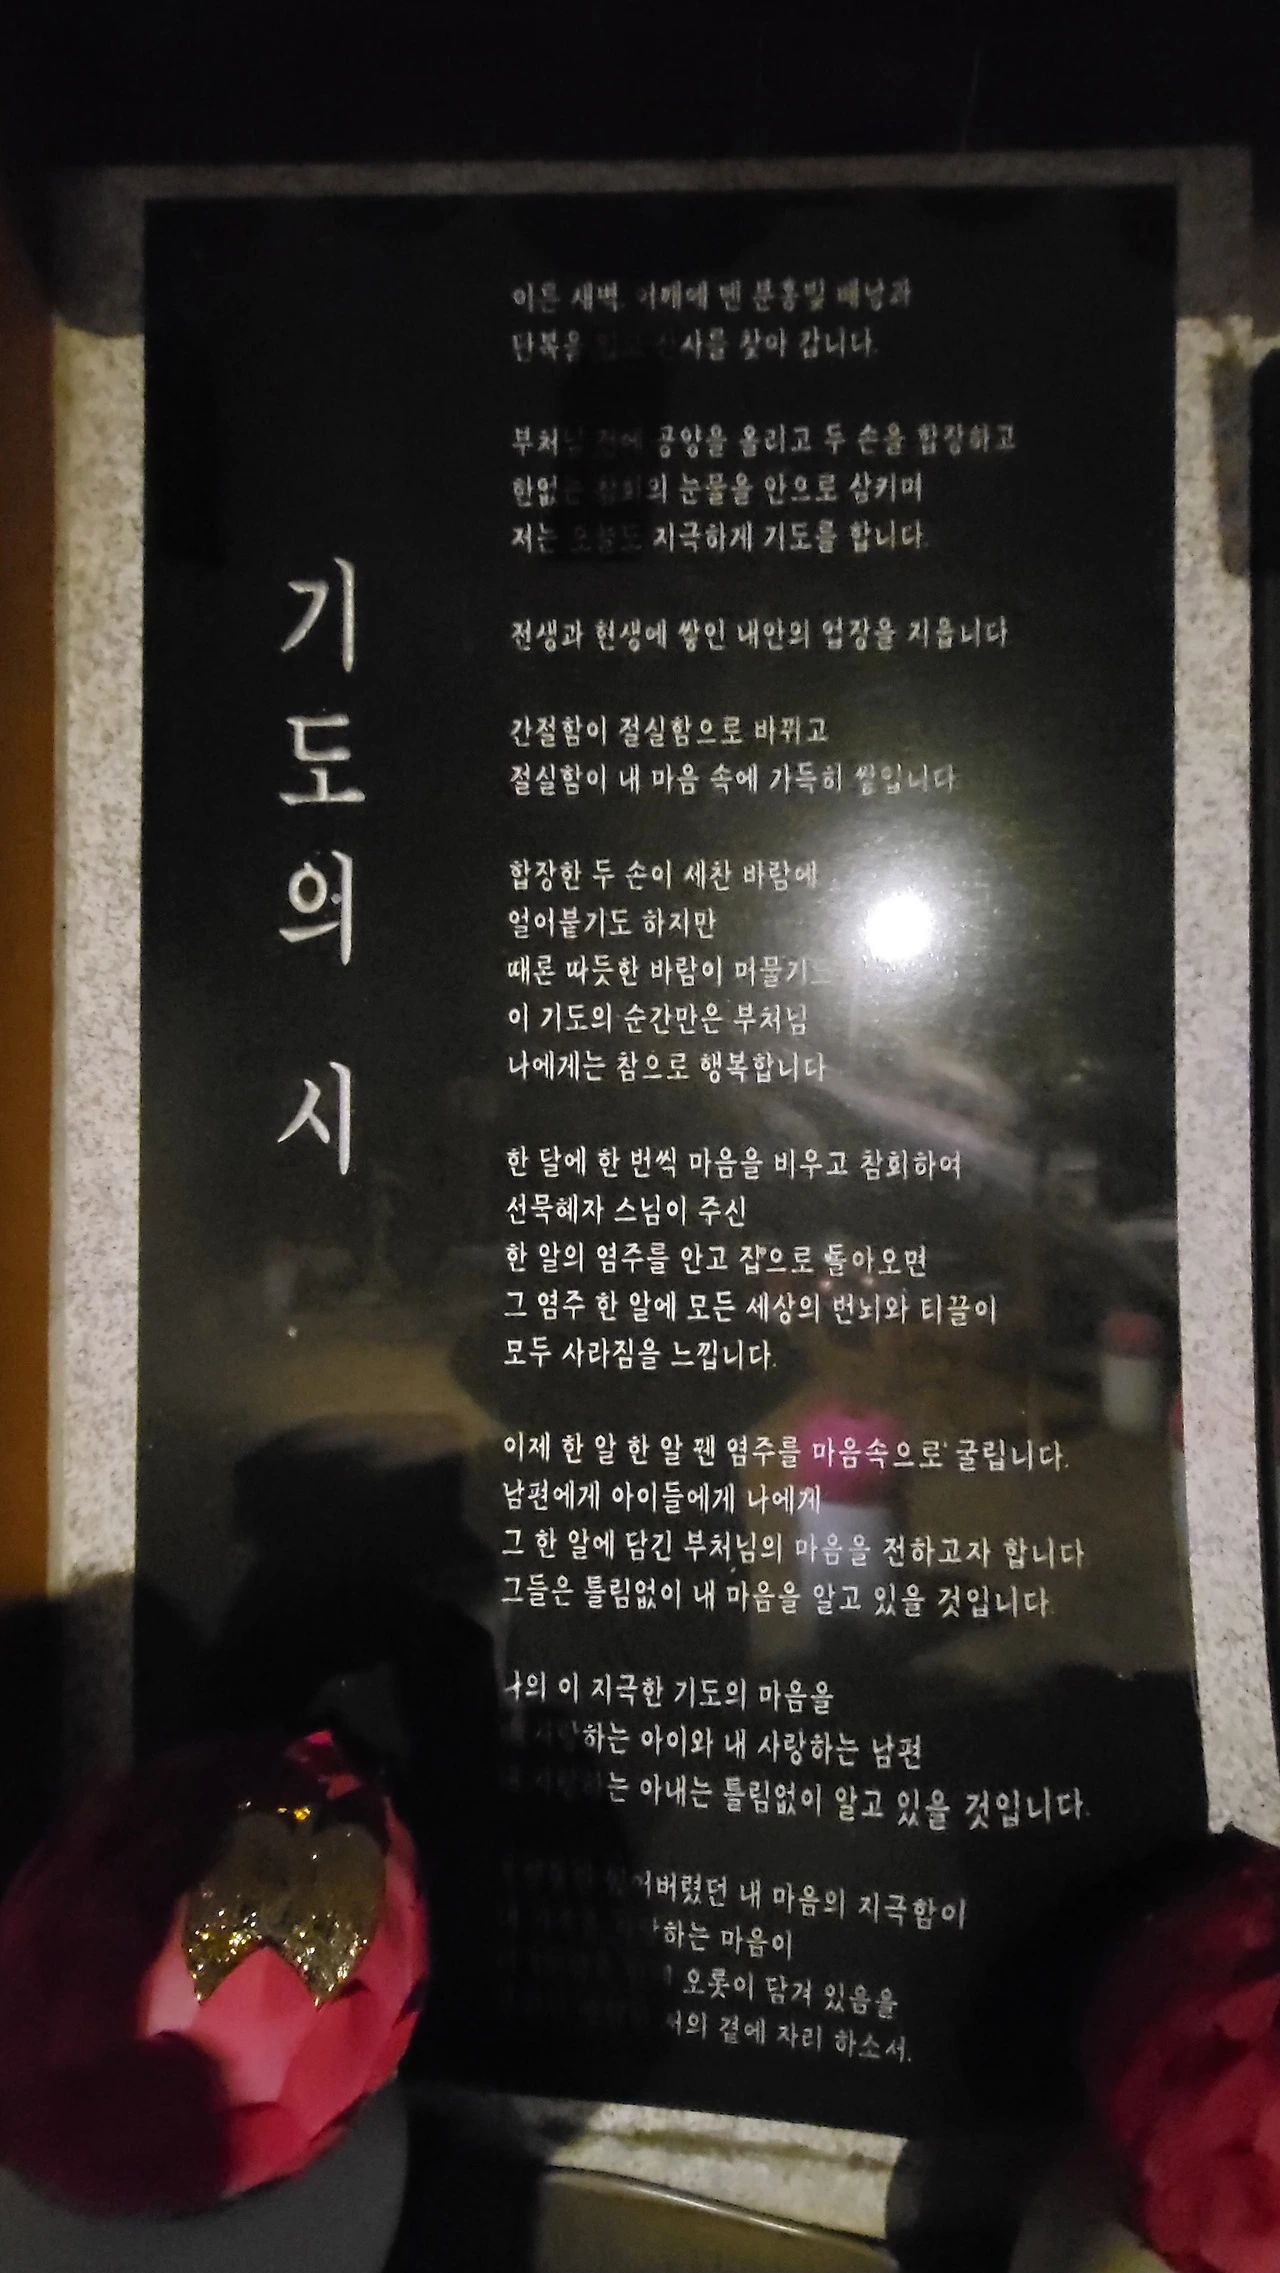 기도의 시
이른 새벽 어깨에 멘 분홍빛 배낭과
단복을 입고 산사를 찾아 갑니다.
부처님 전에 공양을 올리고 두 손을 합장하고
한없는 참회의 눈물을 안으로 삼키며
저는 오늘도 지극하게 기도를 합니다.
전생과 현생에 쌓인 내안의 업장을 지웁니다
간절함이 절실함으로 바뀌고
절실함이 내 마음 속에 가득히 쌓입니다
합장한 두 손이 세찬 바람에
얼어붙기도 하지만
때론 따듯한 바람이
이 기도의 순간만은 부처님
나에게는 참으로 행복합니다
한 달에 한 번씩 마음을 비우고 참회하여
선묵혜자 스님이 주신
한 알의 염주를 안고 집으로 돌아오면
그 염주 한 알에 모든 세상의 번뇌와 티끌이
모두 사라짐을 느낍니다.
이제 한 알 한 알 꿴 염주를 마음속으로 굴립니다.
남편에게 아이들에게 나에게
그 한 알에 담긴 부처님의 마음을 전하고자 합니다
그들은 틀림없이 내 마음을 알고 있을 것입니다.
나의 이 지극한 기도의 마음을
사랑하는 아이와 내 사랑하는 남편
사랑하는 아내는 틀림없이 알고 있을 것입니다.
내 마음의 지극함이
마음이
오롯이 담겨 있음을
저의 곁에 자리 하소서.